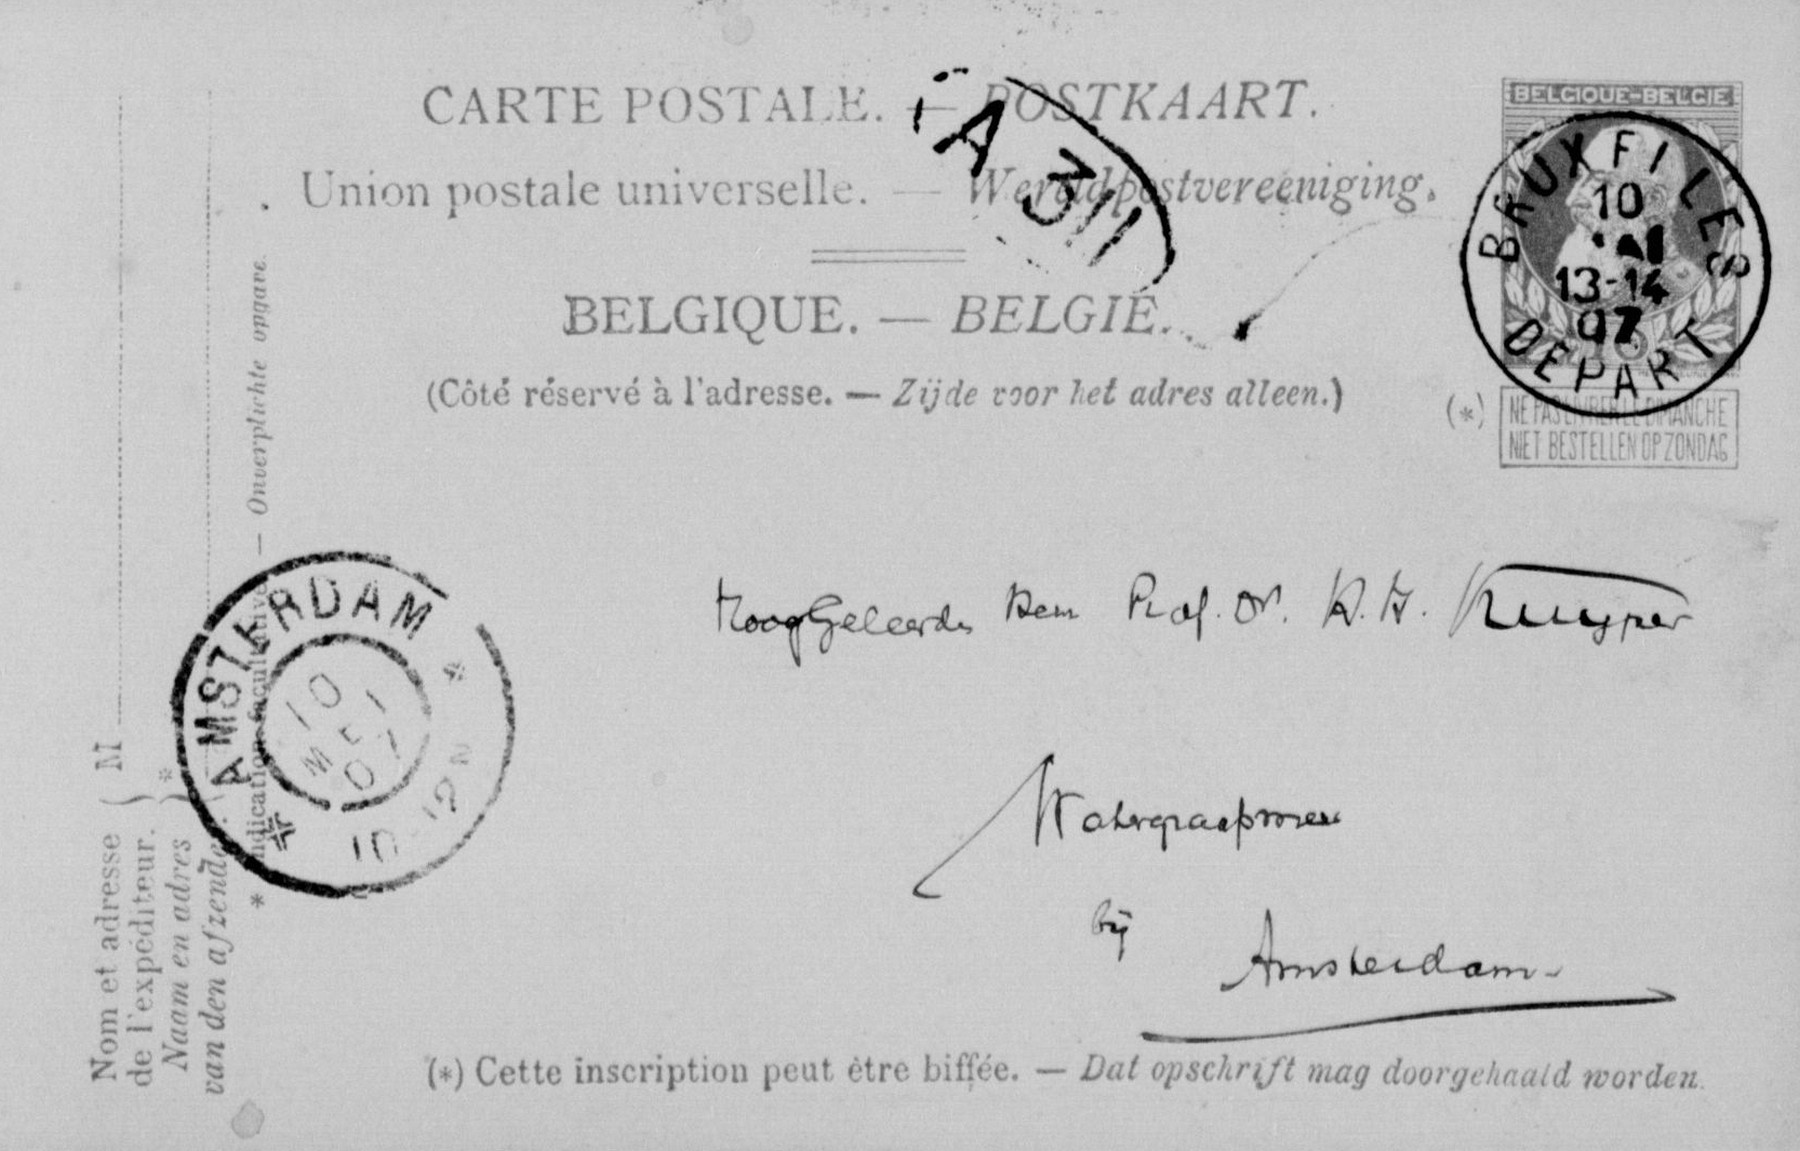 CARTE POSTALE. — POSTKAART.
Union postale universelle. — Wereldpostvereeniging.
BELGIQUE. — BELGIË.
(Côté réservé à l'adresse. — Zijde voor het adres alleen.)
A 311
BELGIQUE-BELGIE
BRUXELLES
10
13-14
07
DEPART
(*) NE PAS LIVRER LE DIMANCHE
NIET BESTELLEN OP ZONDAG
AMSTERDAM
10
MEI
07
10-12 N
Prof. Dr. Kuyper
Watergraafsmeer
bij
Amsterdam
M
Nom et adresse
de l'expéditeur.
Naam en adres
van den afzender.
* Indication facultative — Onverplichte opgave
(*) Cette inscription peut être biffée. — Dat opschrift mag doorgehaald worden.